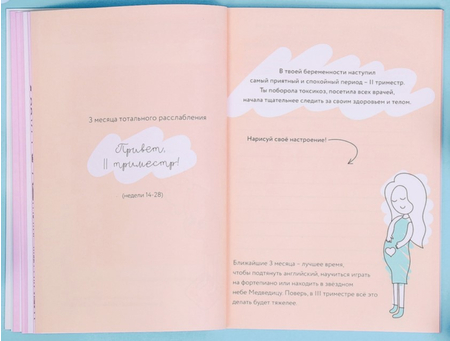 3 месяца тотального расслабления
Привет,
II триместр!
(недели 14-28)
В твоей беременности наступил
самый приятный и спокойный период – II триместр.
Ты поборола токсикоз, посетила всех врачей,
начала тщательнее следить за своим здоровьем и телом.
Нарисуй своё настроение!
Ближайшие 3 месяца – лучшее время,
чтобы подтянуть английский, научиться играть
на фортепиано или находить в звёздном
небе Медведицу. Поверь, в III триместре все это
делать будет тяжелее.